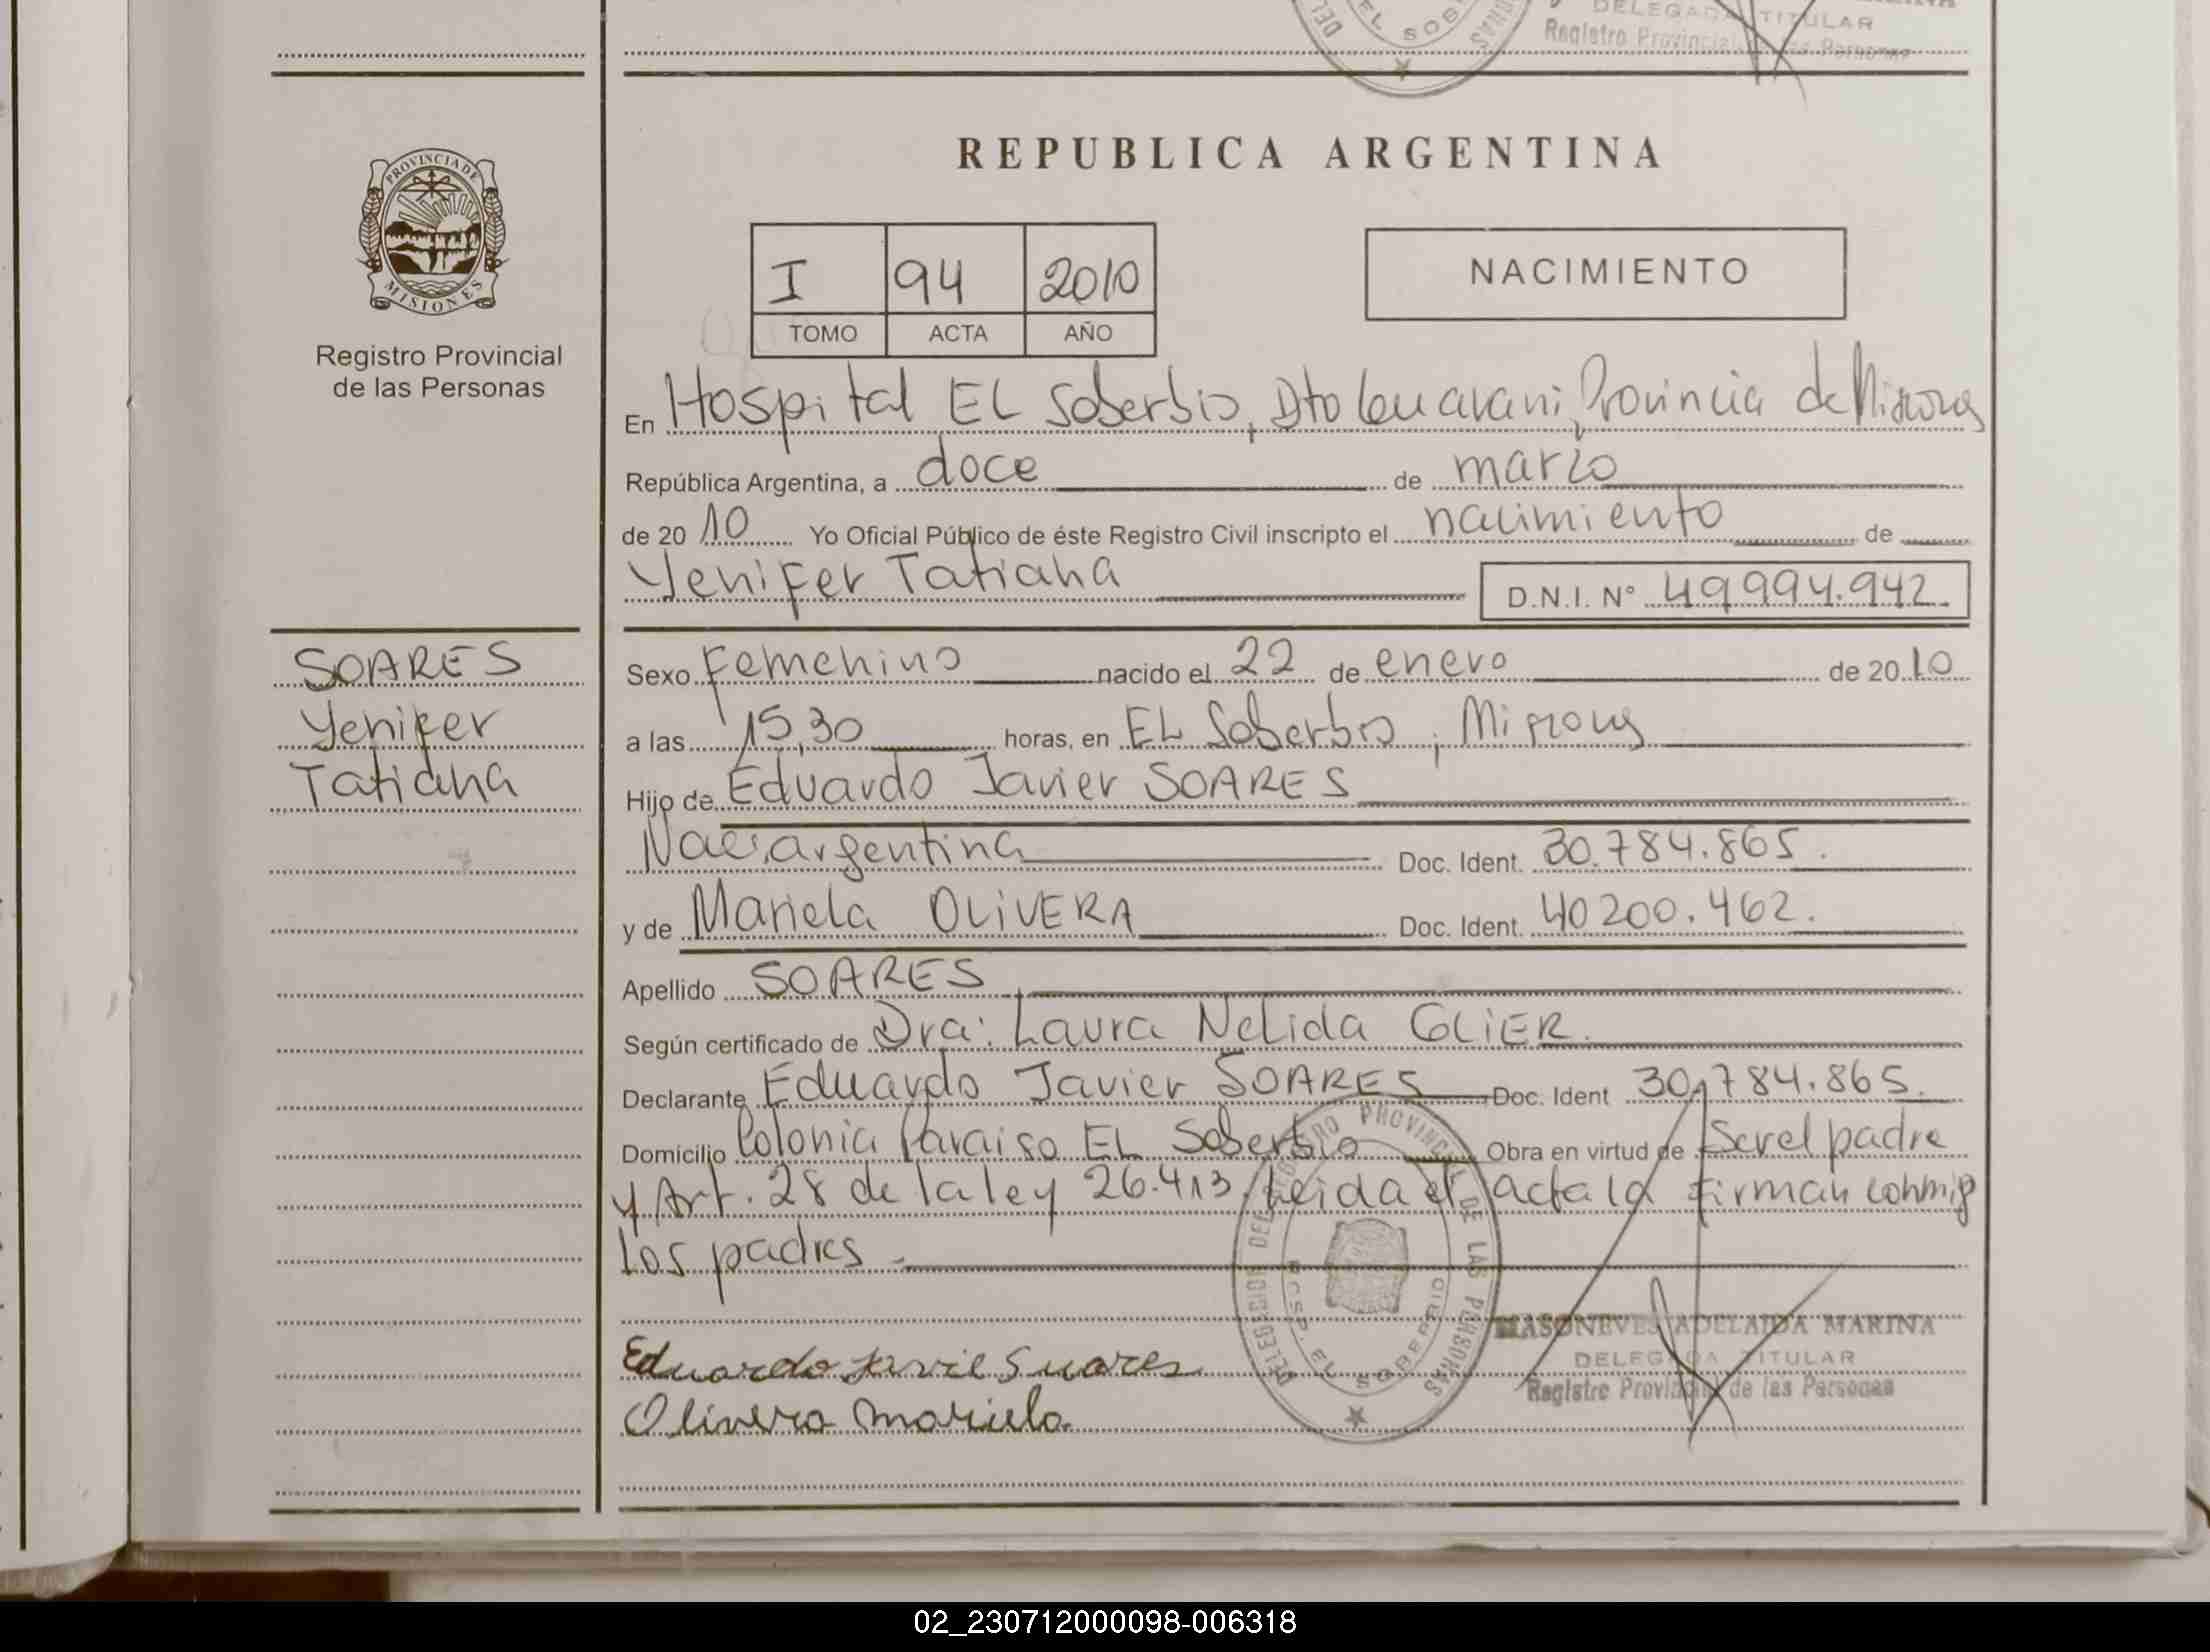 DELEGADA TITULAR
Registro Provincial de las Personas
PROVINCIA DE
MISIONES
Registro Provincial
de las Personas
REPUBLICA ARGENTINA
I 94 2010
TOMO ACTA AÑO
NACIMIENTO
En Hospital EL Soberbio, Dto Guarani, Provincia de Misiones
República Argentina, a doce de marzo
de 2010 Yo Oficial Público de éste Registro Civil inscripto el nacimiento de
Yenifer Tatiana D.N.I. N° 49994.942
SOARES
Yenifer
Tatiana
Sexo Femenino nacido el 22 de enero de 2010
a las 15,30 horas, en EL Soberbio, Misiones
Hijo de Eduardo Javier SOARES
Nac. argentina Doc. Ident. 30.784.865.
y de Mariela OLIVERA Doc. Ident. 40200.462.
Apellido SOARES
Según certificado de Dra: Laura Nelida GLIER.
Declarante Eduardo Javier SOARES Doc. Ident 30.784.865.
Domicilio Colonia Paraiso EL Soberbio Obra en virtud de Ser el padre
y Art. 28 de la ley 26.413. Leida el acta la firman conmigo
los padres.
DELEGACION DEL REGISTRO PROVINCIAL DE LAS PERSONAS
HOSP. EL SOBERBIO
MASONEVES ADELAIDA MARINA
DELEGADA TITULAR
Registro Provincial de las Personas
Eduardo Javie Suares
Olivera Mariela
02_230712000098-006318